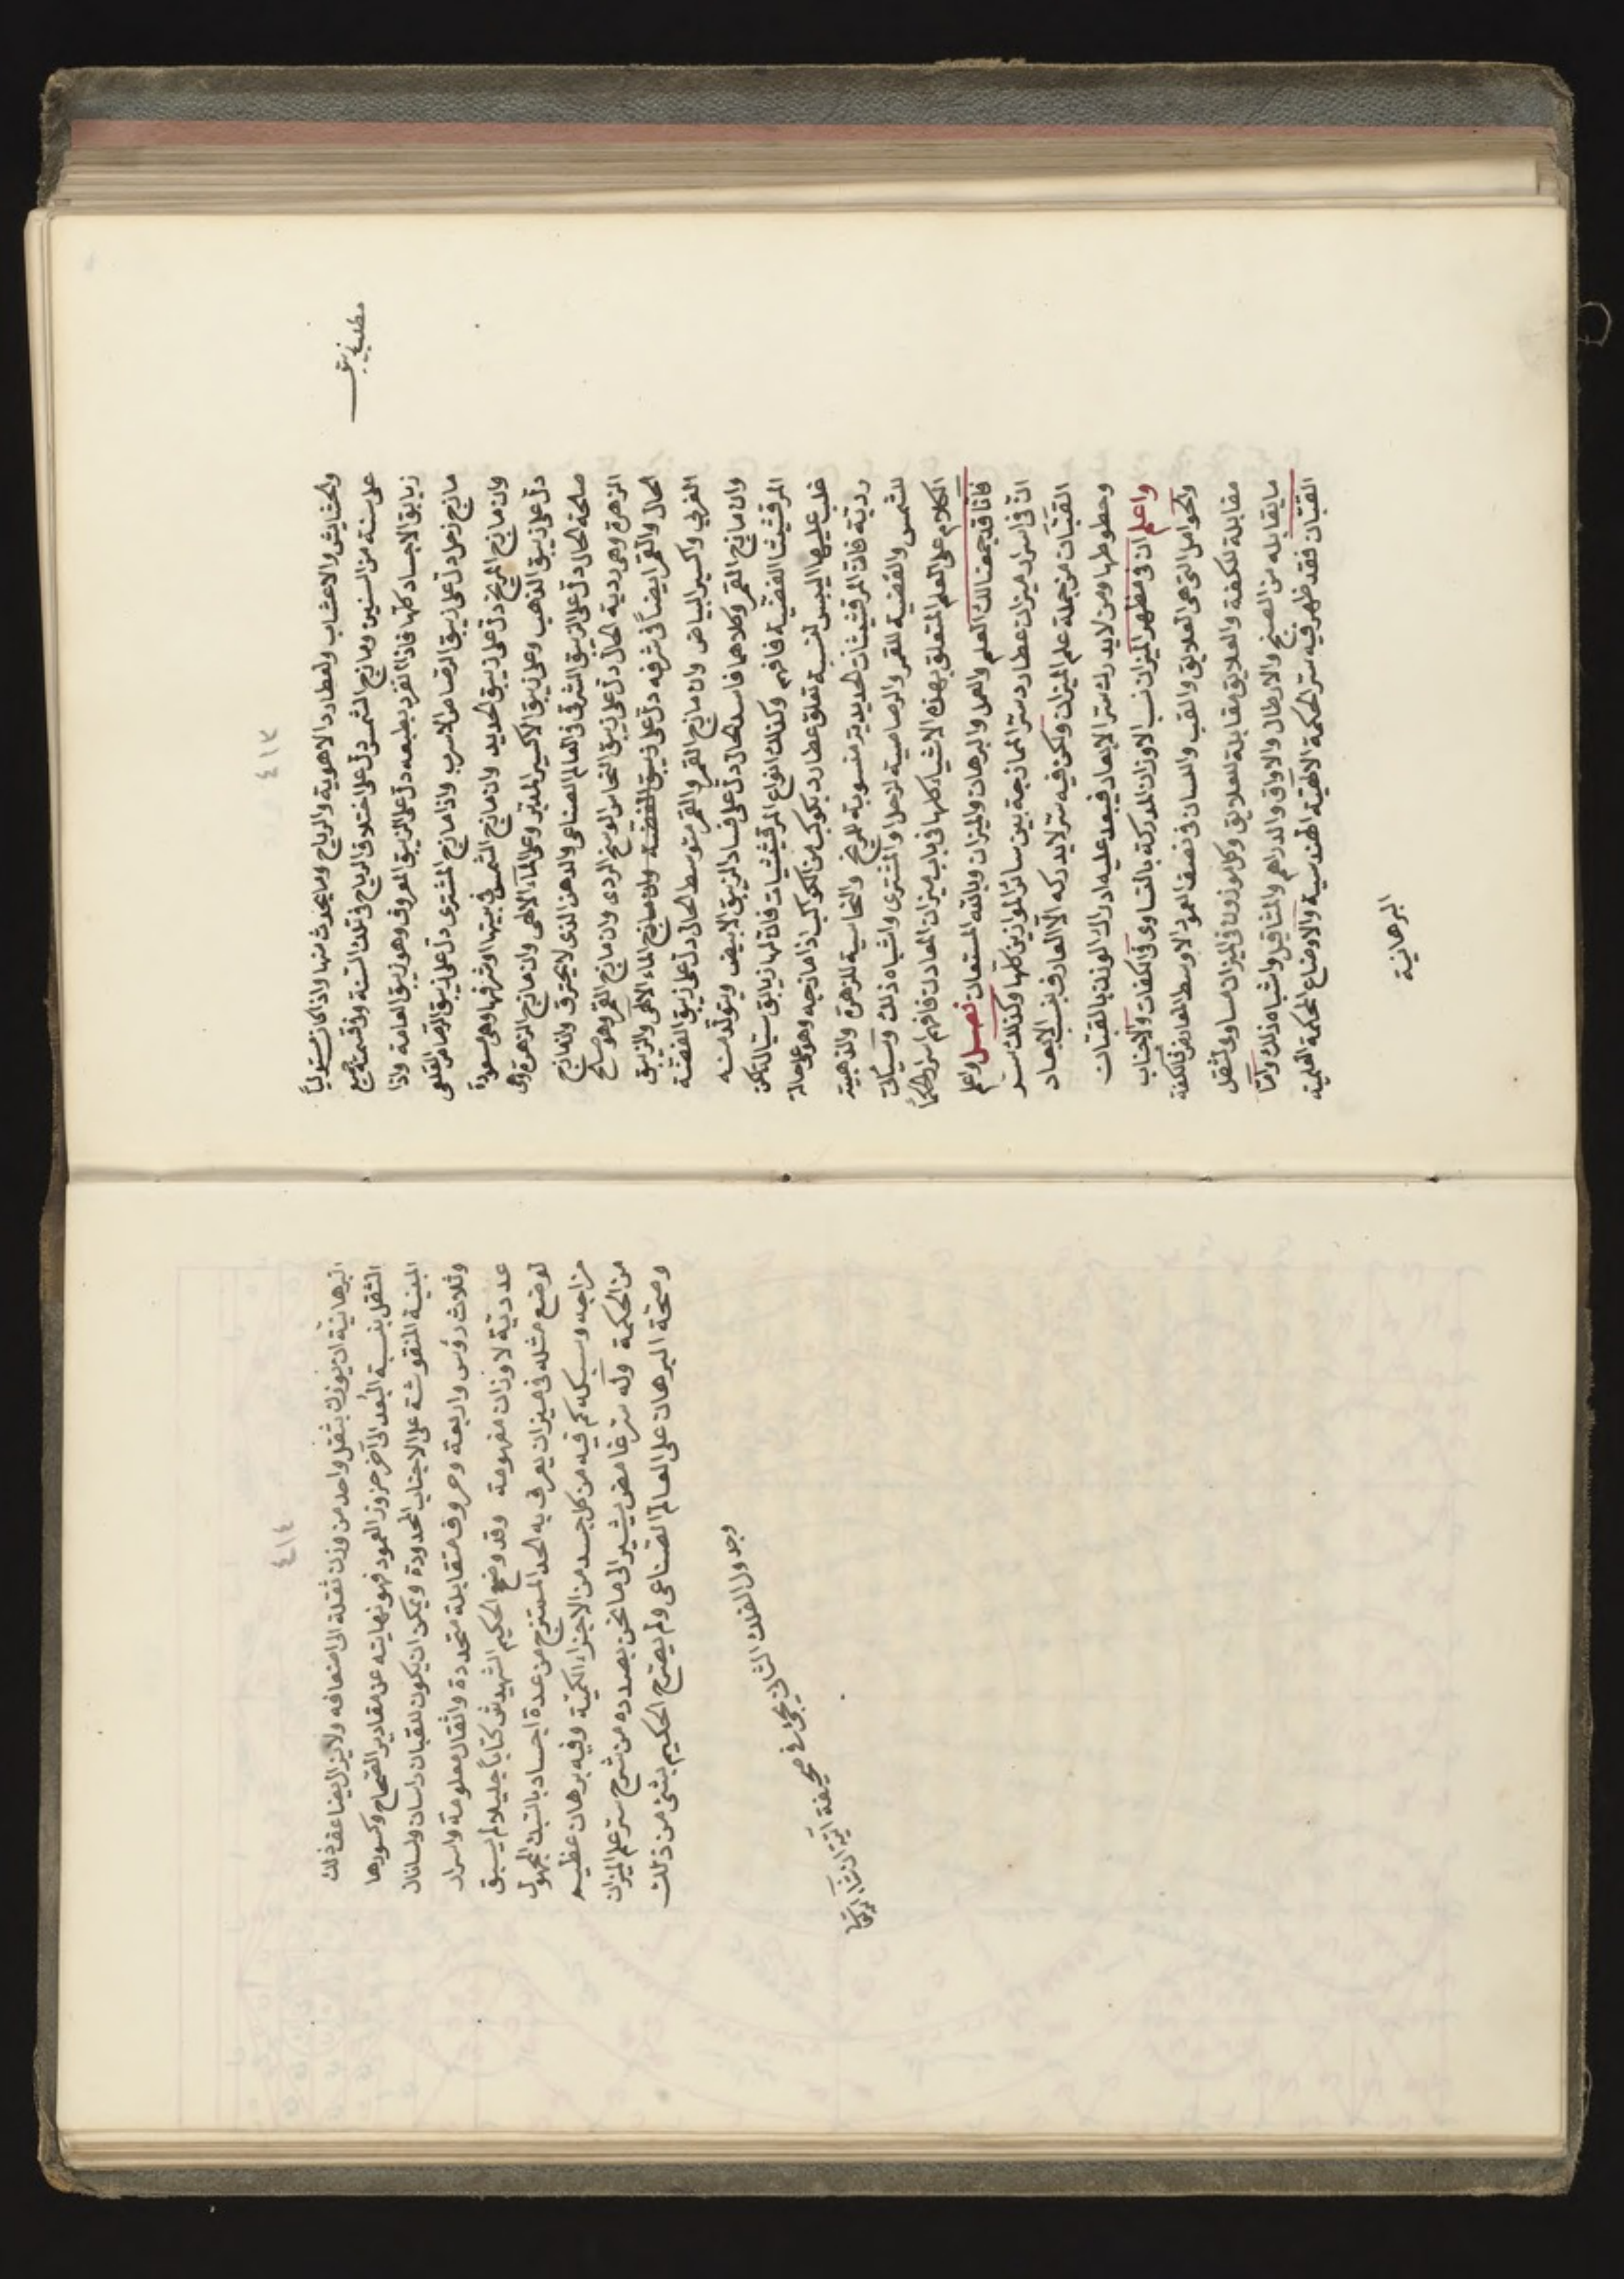 ٤١٣
والحشايش والاعشاب ولعطارد الاهوية والرياح وما يحدث منها واذا كان مستوليًا
على سنة من السنين ومازج الشمس دل على اختلاف الرياح في تلك السنة وفي قسمة جميع
زيابق الاجساد كلها فاذا انفرد بطبعه دل على الزيبق المعروف وهو زيبق العامة واذا
مازج زحل دل على زيبق الرصاص الاسرب واذا مازج المشترى دل على زيبق الرصاص القلعى
وان مازج المريخ دل على زيبق الحديد وان مازج الشمس في بيتها او شرفها وهى مسعودة
دل على زيبق الذهب وعلى زيبق الاكسير المدبّر وعلى الماء الالهى وان مازج الزهرة وهى
صالحة الحال دل على الزيبق الشرقى في العالم الصناعى والدهن الذى لا يحترق وان مازج
الزهرة وهى ردية الحال دل على زيبق النحاس الوسخ الردى وان مازج القمر وهو صالح
الحال والقمر ايضًا في شرفه دل على زيبق الفضة وان مازج الماء الالهى والزيبق
الغربي واكسير البياض وان مازج القمر والقمر متوسط الحال دل على زيبق الفضة
وان مازج القمر وكلاهما فاسد الحال دل على فساد الزيبق الابيض ويتولد منه
المرقشيثا الفضية فافهم وكذلك انواع المرقشيثات فان لها زيابق سيالة لكن
غلب عليها اليبس لنسبة تعلق عطارد بكوكب من الكواكب اذا مازجه وهو على حالة
ردية فان المرقشيثات الحديدية منسوبة للمريخ والنحاسية للزهرة والذهبية
للشمس والفضية للقمر والرصاصية لزحل او المشترى واشباه ذلك وسياتى
الكلام على العلم المتعلق بهذه الاشياء كلها في باب ميزان المعادن فافهم اسرار الحكماء
فانا قد جمعنا لك العلم والعمل والبرهان والميزان وبالله المستعان فصل واعلم
ان في اسرار ميزان عطارد ستر الممازجة بين سائر الموازين كلها وكذلك ستر
القبّان من جملة علم الميزان ولكن فيه ستر لا يدركه الا العارف بنسب الابعاد
وخطوطها ومن لا يدرك ستر الابعاد فيبعد عليه ادراك الوزن بالقبان
واعلم ان في مظهر الميزان نسب الاوزان المدركة بالتساوى في الكفات والاجناب
والحوامل التى هى العلايق والقب واللسان في نصف العمود الاوسط العارض فالكفة
مقابلة للكفة والعلايق مقابلة للعلايق وكل موزون في الميزان مساوى لثقل
ما يقابله من الصنج والارطال والاواق والدراهم والمثاقيل واشباه ذلك واما
القبّان فقد ظهر فيه ستر الحكمة الالهية الهندسية والاوضاع الحكمة العلمية
البرهانية
مطلب زيبق
٤١٤
البرهانية ان يوزن بثقل واحد من وزن ثقله الى اضعافه ولا يزال يضاعف ذلك
الثقل بنسبة البُعد الى آخر حزوز العمود فهو نهايته عن مقادير الصحاح وكسورها
المبنية المنقوشة على الاجناب المحدودة ويمكن ان يكون للقبان راسان ولسانان
وثلاث رؤس واربعة وحروف متقابلة متحددة واثقال معلومة واسرار
عددية لاوزان مفهومة وقد وضع الحكيم الشهيد كتابًا جليلا لم يسبق
لوضع مثله في ميزان يعرف به الحد الممتزج من عدة اجساد بالنسبة المجهول
مزاجه وسبكه كم فيه من كل جسد من الاجزاء الكمية وفيه برهان عظيم
من الحكمة وله ستر غامض يشير الى ما نحن بصدده من شرح ستر علم الميزان
وصحة البرهان على العالم الصناعى ولم يصرح الحكيم بشئ من ذلك
وجدول الفلك الثانى يجئ في صحيفة آتية ان شاء الله تعالى